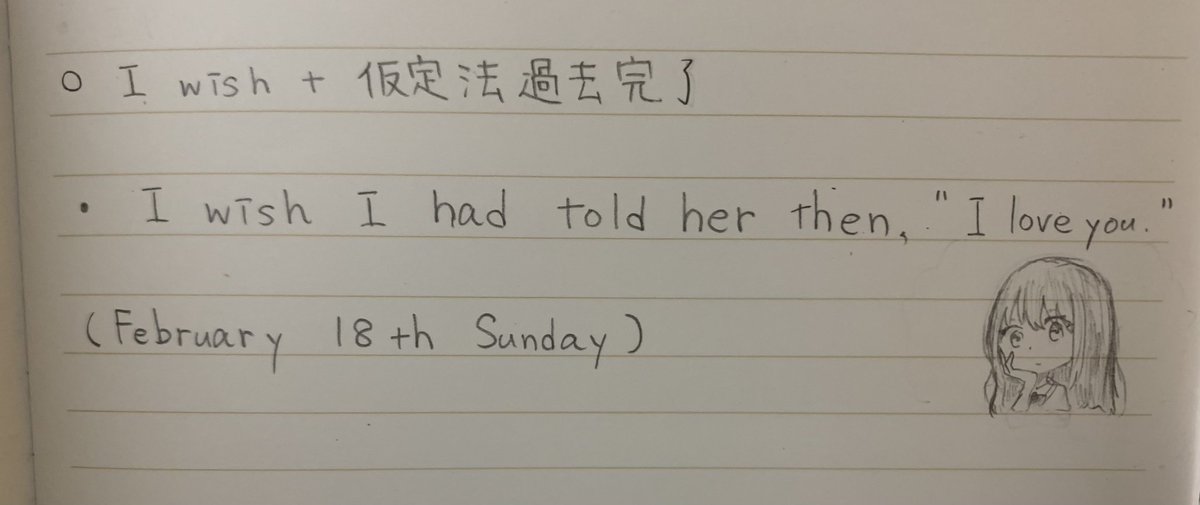 ○ I wish + 仮定法過去完了
・ I wish I had told her then, "I love you."
(February 18th Sunday)